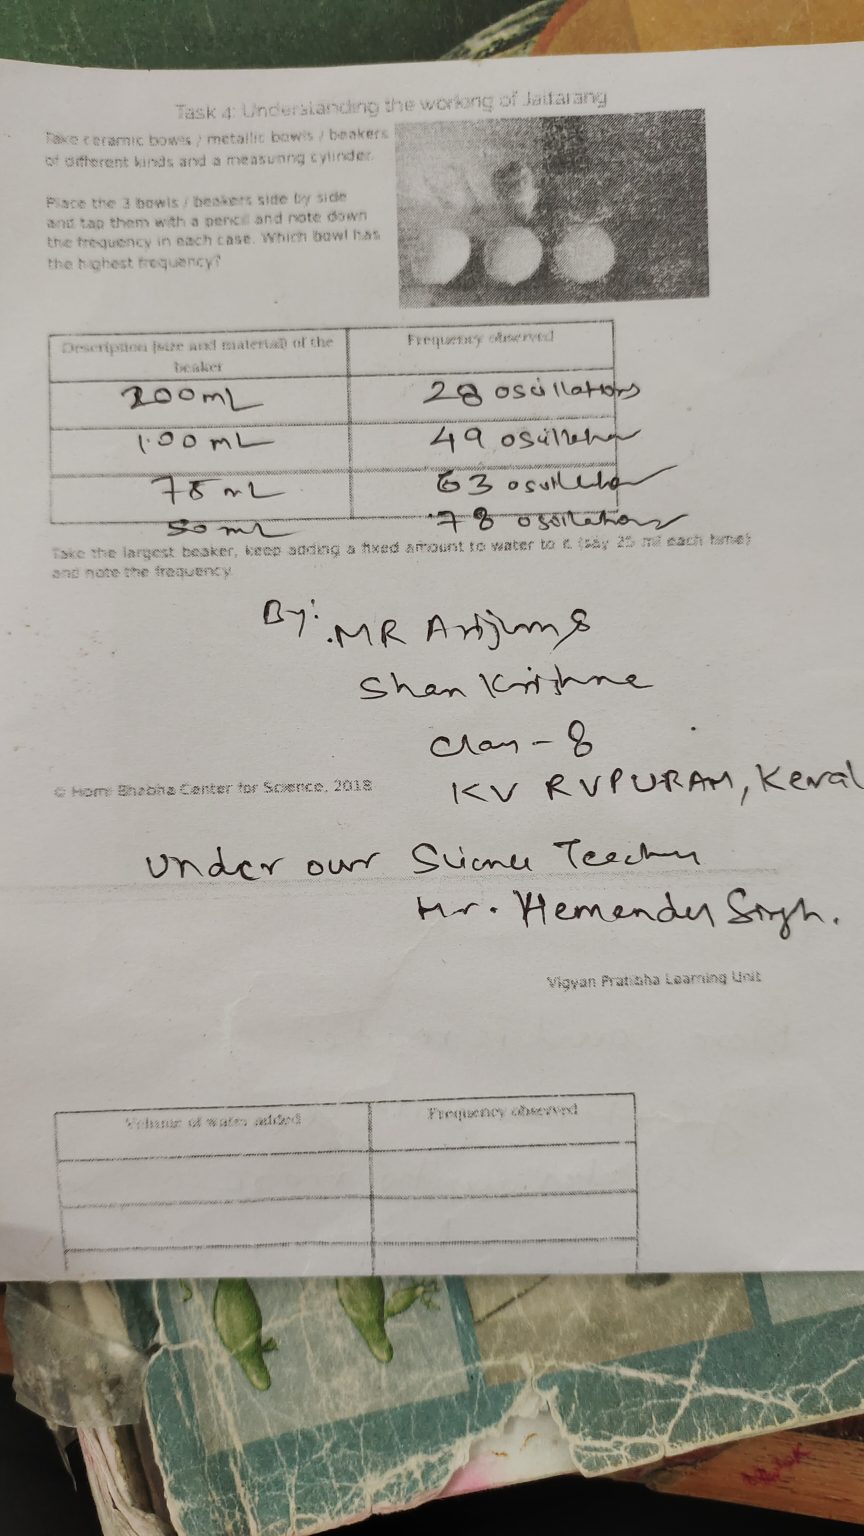 Task 4: Understanding the working of Jaltarang
Take ceramic bowls / metallic bowls / beakers
of different kinds and a measuring cylinder.
Place the 3 bowls / beakers side by side
and tap them with a pencil and note down
the frequency in each case. Which bowl has
the highest frequency?
Description (size and material) of the
beaker
Frequency observed
200 mL
28 oscillations
100 mL
49 oscillation
75 mL
63 oscillation
50 mL
78 oscillations
Take the largest beaker, keep adding a fixed amount to water to it (say 25 ml each time)
and note the frequency.
By: MR
Shan Krishna
Class - 8
© Homi Bhabha Center for Science, 2018
KV RVPURAM, Keral
Under our Science Teacher
Mr. Hemender Singh.
Vigyan Pratibha Learning Unit
Volume of water added
Frequency observed